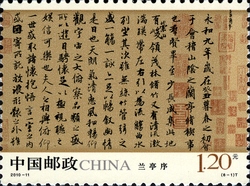 永和九年歲在癸丑暮春之初會
于會稽山陰之蘭亭脩稧事
也群賢畢至少長咸集此地
有峻領茂林脩竹又有清流激
湍暎帶左右引以為流觴曲水
列坐其次雖無絲竹管弦之
盛一觴一詠亦足以暢敘幽情
是日也天朗氣清惠風和暢仰
觀宇宙之大俯察品類之盛
所以遊目騁懷足以極視聽之
娛信可樂也夫人之相與俯仰
一世或取諸懷抱悟言一室之內
中国邮政 CHINA 兰亭序 1.20元
2010-11 (6-1)T